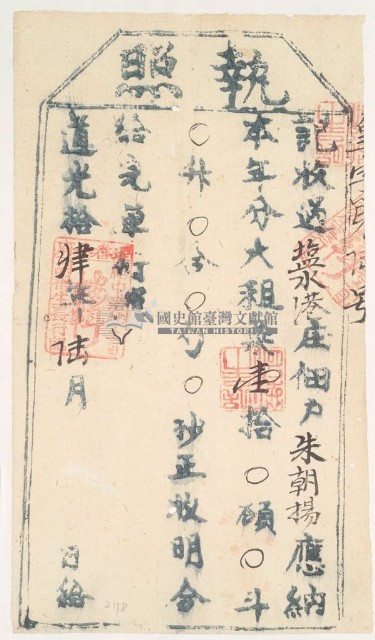 執照
記收過塩水港庄佃户朱朝揚應納
本年分大租 壹拾〇碩〇斗
〇升〇合〇勺〇抄正收明合
給完單
道光拾肆年陸月 日給
國史館臺灣文獻館
TAIWAN HISTORICA
278